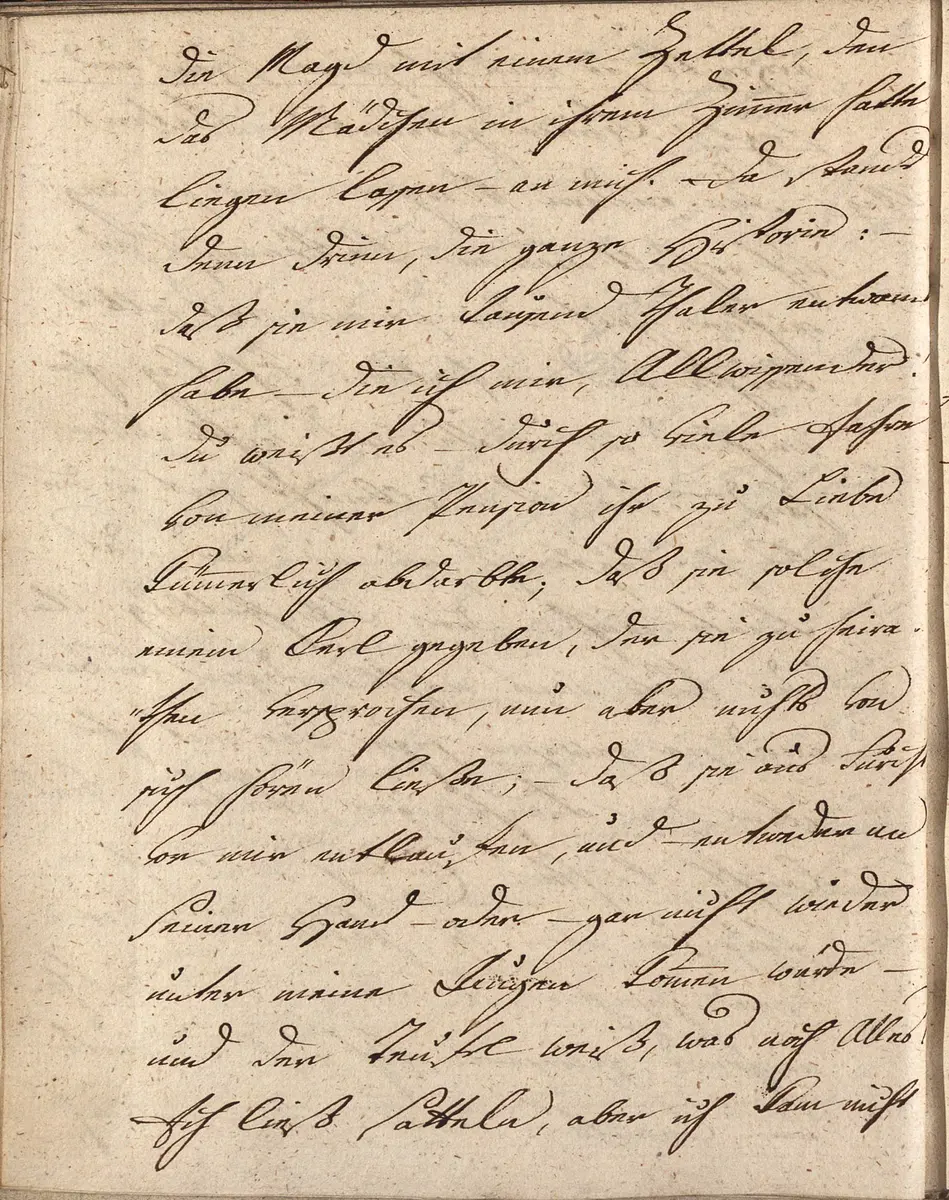 die Magd mit einem Zettel, den
das Mädchen in ihrem Zimmer hatte
liegen lassen – an mich. – da stand
denn drinn, die ganze Historie: –
daß sie mir tausend Thaler entwand
habe – die ich mir, Allwissender!
du weißt es – durch so viele Jahre
von meiner Pension ihr zu Liebe
kümmerlich abdarbte; daß sie solche
einem Kerl gegeben, der sie zu heira-
"then versprochen, nun aber nichts von
sich hören ließe; – daß sie aus Furcht
vor mir entlaufen, und – entweder an
seiner Hand – oder – gar nicht wieder
unter meine Augen kommen würde –
und der Teufel weiß, was noch Alles!
Ich ließ satteln, aber ich kam nicht